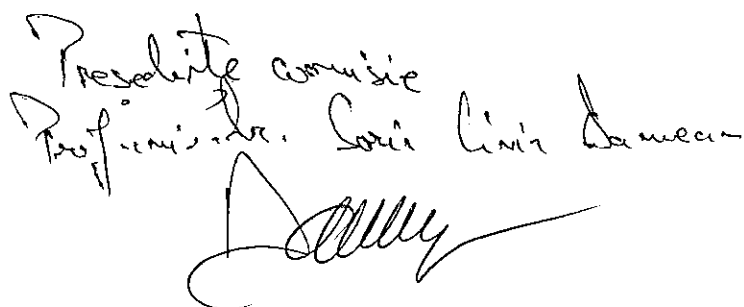 Președinte comisie
Prof.univ.dr. Sorin Liviu Damean